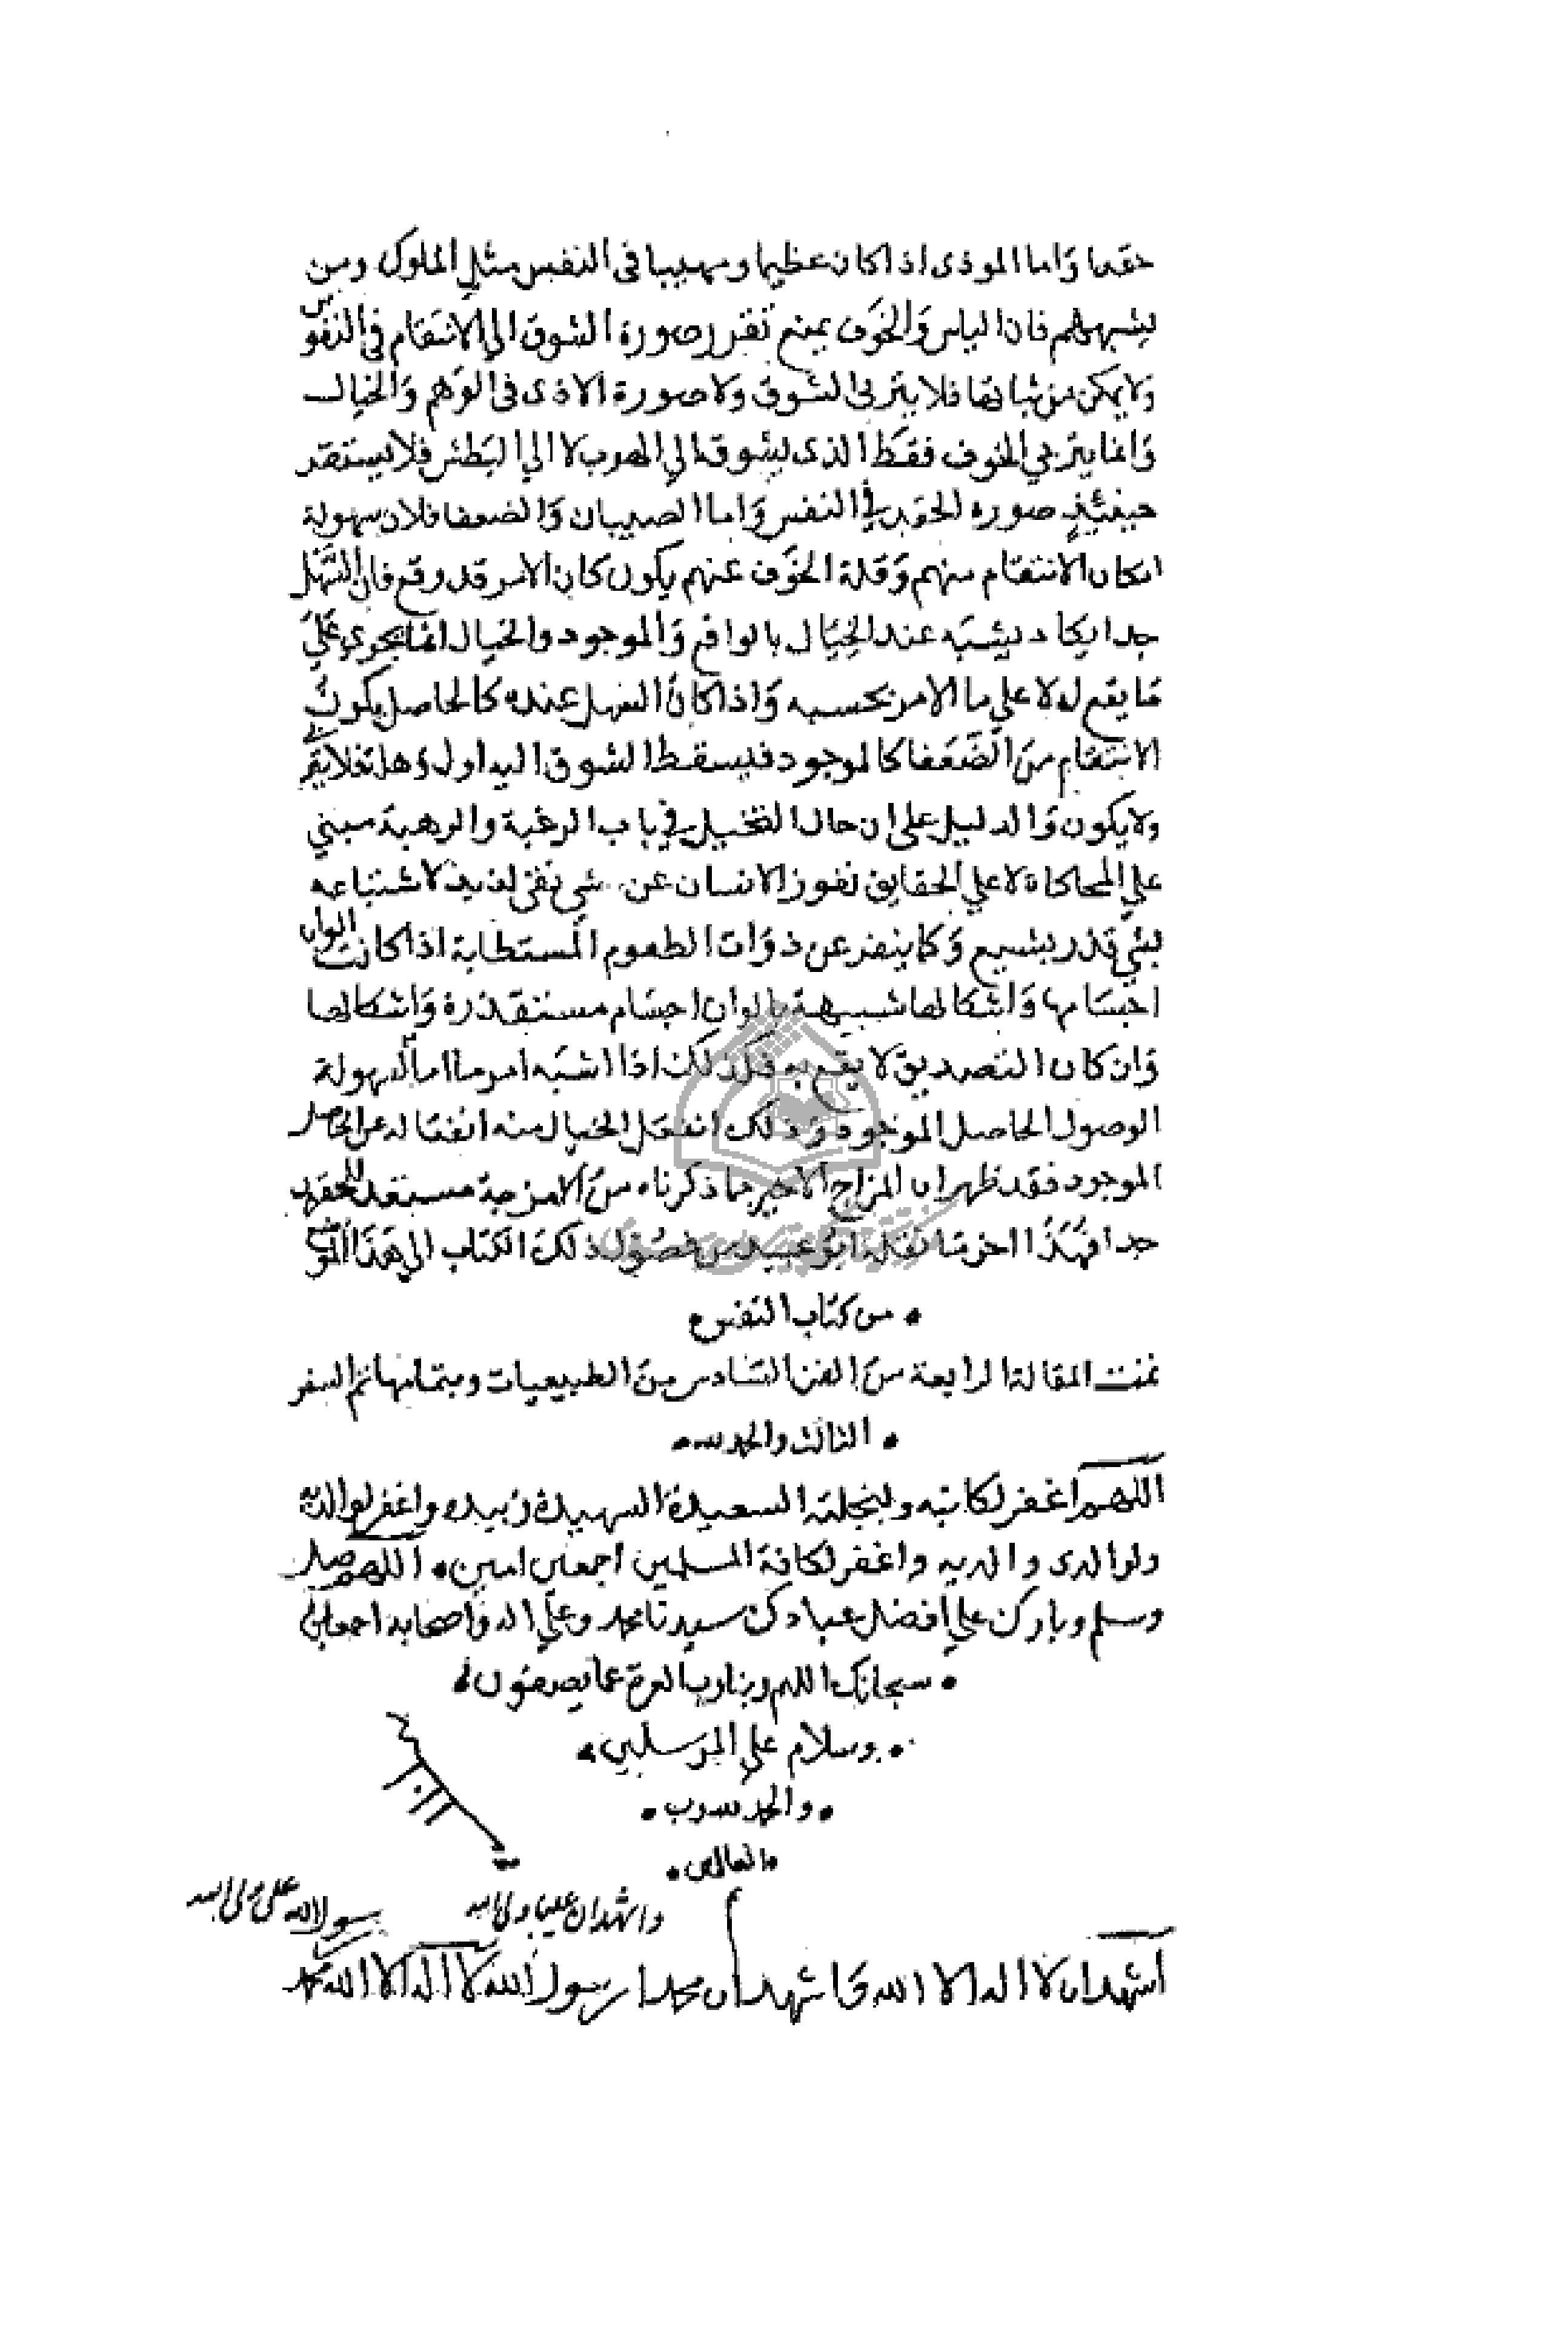 حقدا وَاما الموذى اذا كان عظيما ومهيبا فى النفس مثل الملوك ومن
يشبههم فان الياس وَالخوَف يمنع تقرر صورة الشوق الي الانتقام في النفوس
وَلا يمكن من ثباتها فلا يتربى الشوق ولا صورة الاذى فى الوَهم وَالخيال
وَانما يتربي الخوف فقط الذى يشوق الي الهرب لا الي البَطش فلا يستقر
حينئذٍ صورة الحقد في النفس وَاما الصبيان وَالضعفا فلان سهولة
امكان الانتقام منهم وَقلة الخوَف عنهم يكون كان الامر قد وقع فان السَّهل
جدا يكاد يشبَه عند الخِيَال بالواقع وَالموجود والخيال انما يجرى علَيَ
مَا يقع له لا علي ما الامر بحسبه وَاذا كان السهل عنده كالحاصل يكون
الانتقام منَ الضَعَفا كالموجود فيسقط الشوق اليه اول وَهلة فلا يقي
وَلا يكون وَالدليل على ان حال التخيل في باب الرغبة والرهبة مبني
علي المحاكاة لا علي الحقايق نفور الانسان عن شي نقى لذيذ لاشتباهه
بشي قذر بشيع وَكما ينفر عن ذوَات الطعوم المستطابة اذا كانت الوان
اجسَامها وَاشكالها شبيهة بالوان اجسَام مستقذرة وَاشكالها
وَان كان التصديق لا يقع به فكذلك اذا اشبَه امر ما اما لسهولة
الوصول الحاصل الموجود وَذلك انفعل الخيال منه انفعاله عن الحاصل
الموجود فقد ظهر ان المزاج الاخير مما ذكرناه منَ الامزجة مستعد للحقد
جدا فهَذَا اخر مَا نقله ابو عبيد من فصُول ذلكَ الكتاب الى هَذَا الموضع
• من كتاب النفس
تمت المقالة الرابعة منَ الفن السَادس منَ الطبيعيات وبتمامها تم السفر
• الثالث والحمد لله •
اللهم اغفر لكاتبه ولنجلته السعيدة الشهيدة زبيده واغفر لوالديه
ولوالدى والديه واغفر لكافة المسلمين اجمعين امين • اللهم صل
وسلم وبارك علي افضل عبادك سيدنا محمد وعلي اله وَاصحابه اجمعين
• سبحانك اللهم ربنا رب العزة عما يصفون •
• وسلام علي المرسلين •
• والحمد لله رب •
• العالمين •
واشهد ان عليا ولى الله رسول الله على ولى الله
اشهد ان لا اله الا الله وَاشهد ان محمدا رسول الله لا اله الا الله محمد